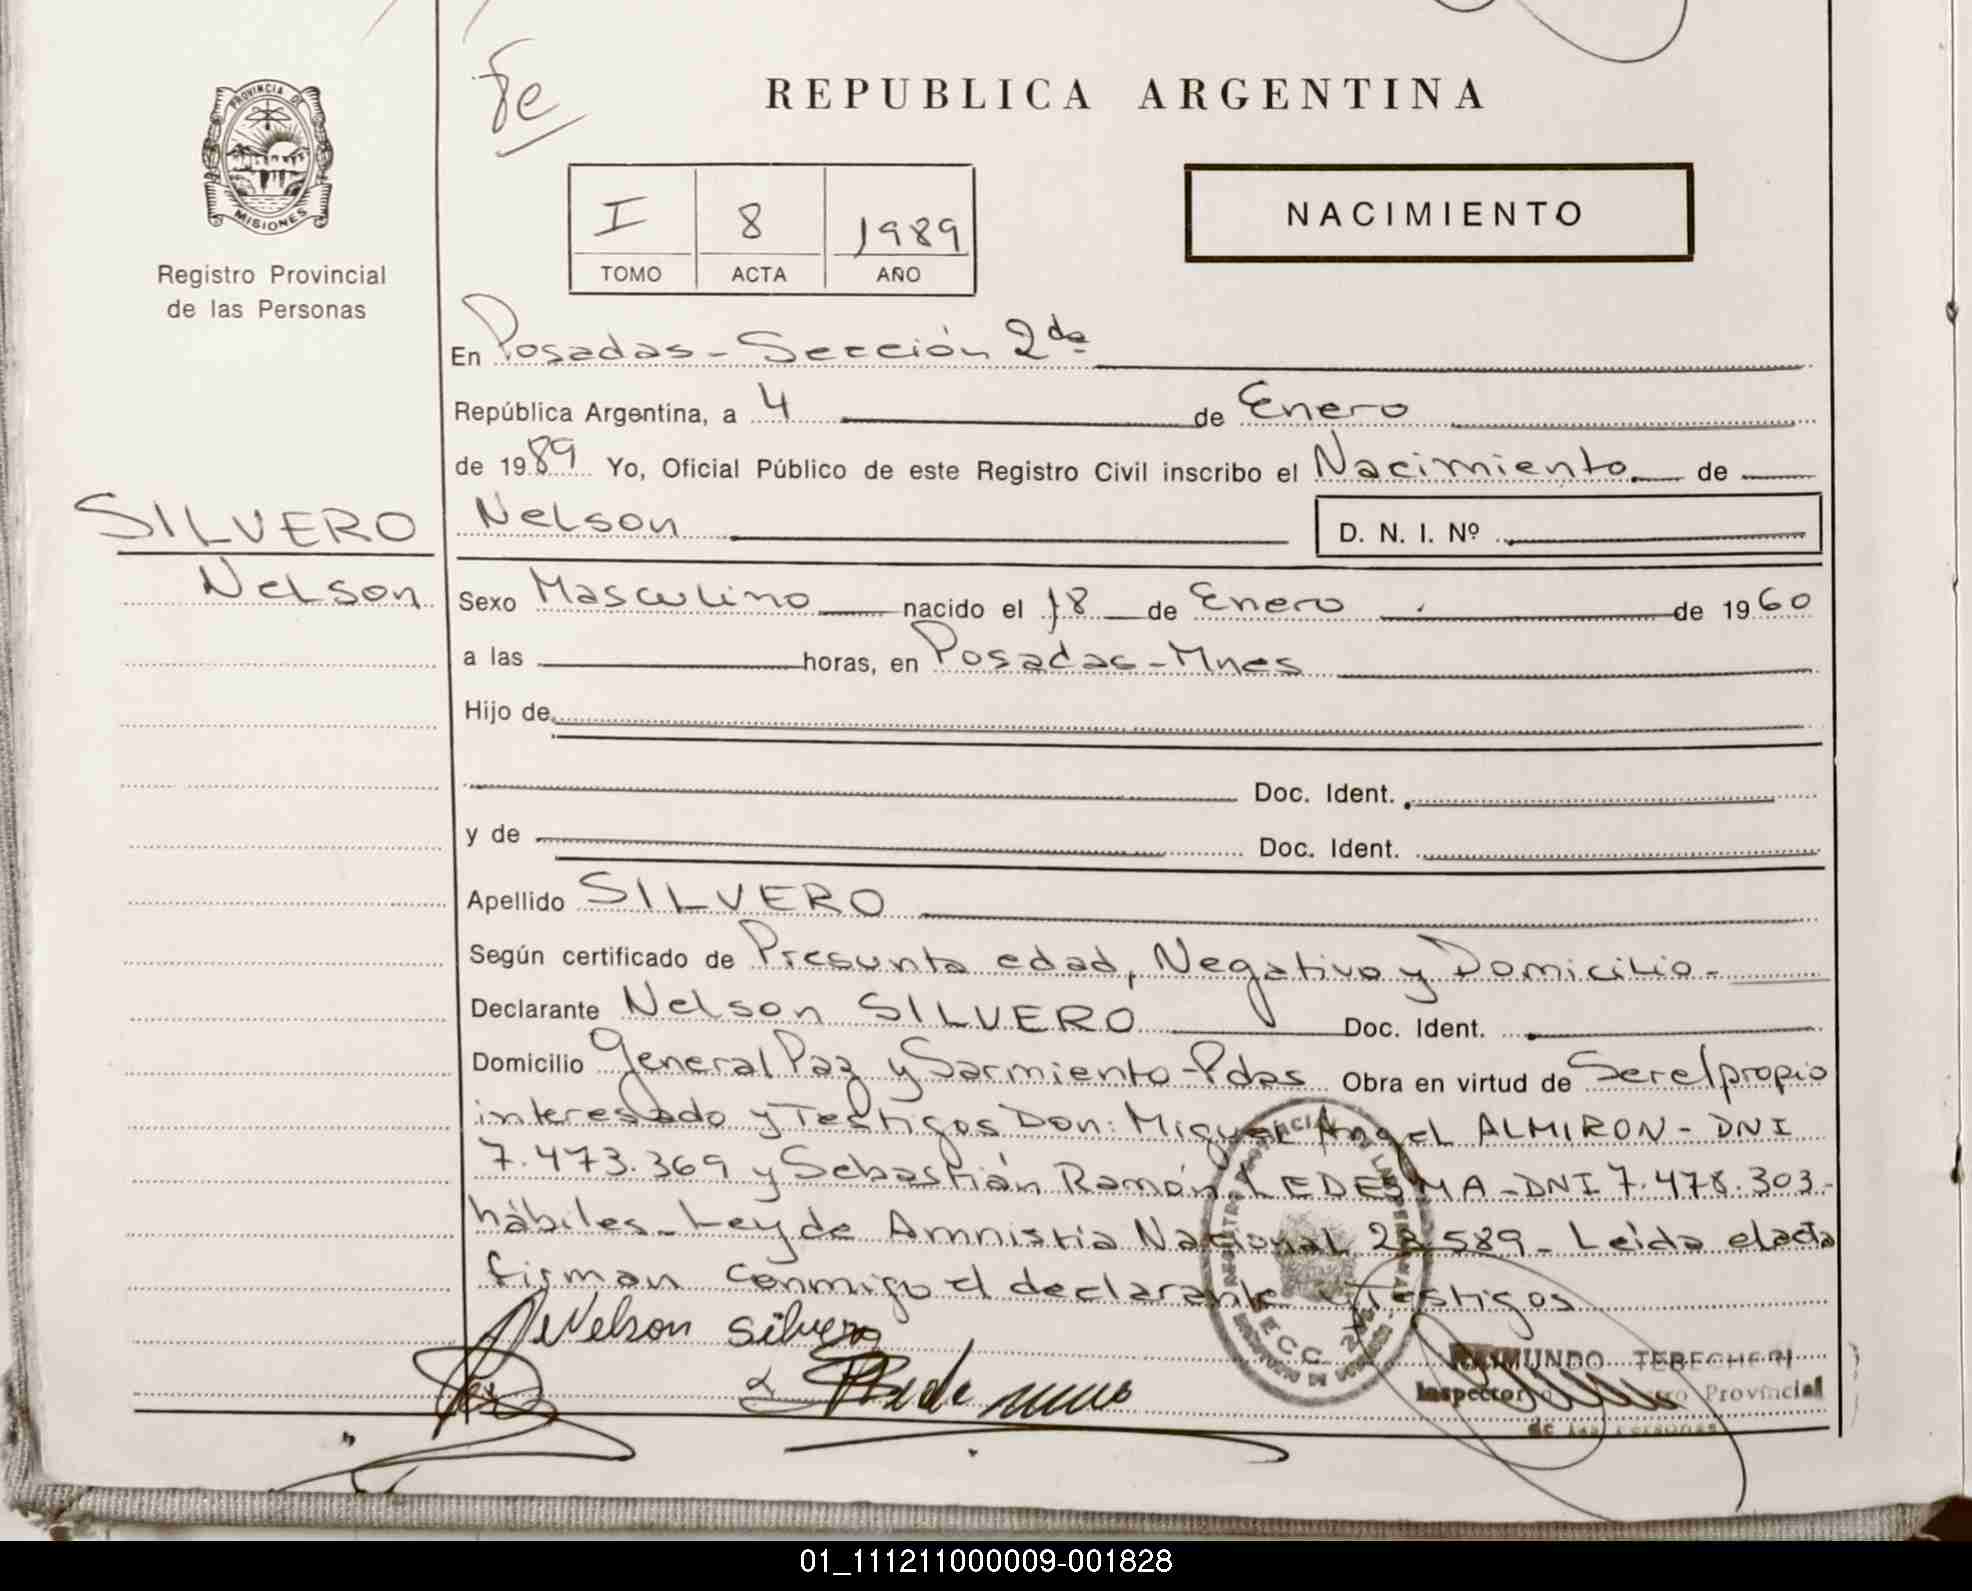 Fe
REPUBLICA ARGENTINA
PROVINCIA DE
MISIONES
Registro Provincial
de las Personas
I 8 1989
TOMO ACTA AÑO
NACIMIENTO
En Posadas - Sección 2da
República Argentina, a 4 de Enero
de 1989 Yo, Oficial Público de este Registro Civil inscribo el Nacimiento de
SILVERO
Nelson
Nelson D. N. I. Nº
Sexo Masculino nacido el 18 de Enero de 1960
a las horas, en Posadas - Mnes
Hijo de
Doc. Ident.
y de Doc. Ident.
Apellido SILVERO
Según certificado de Presunta edad, Negativo y Domicilio -
Declarante Nelson SILVERO Doc. Ident.
Domicilio General Paz y Sarmiento - Pdas Obra en virtud de Ser el propio
interesado y Testigos Don: Miguel Angel ALMIRON - DNI
7.473.369 y Sebastián Ramón LEDESMA - DNI 7.478.303 -
hábiles - Ley de Amnistia Nacional 23.589 - Leida el acta
firman conmigo el declarante y Testigos
Nelson Silvero
RAIMUNDO TEBECHERI
Inspector Provincial
de las Personas
01_111211000009-001828